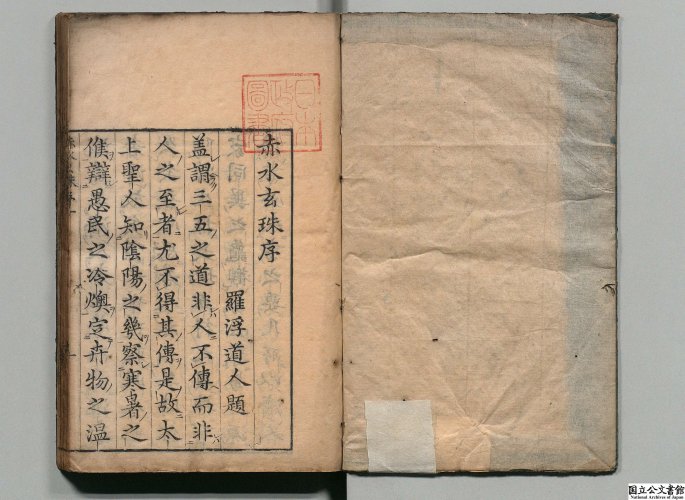 赤水玄珠序
羅浮道人題
蓋謂三五之道非人不傳而非
人之至者尤不得其傳是故太
上聖人知陰陽之幾察寒暑之
候辯愚民之冷燠定卉物之温
日本
政府
圖書
国立公文書館
National Archives of Japan